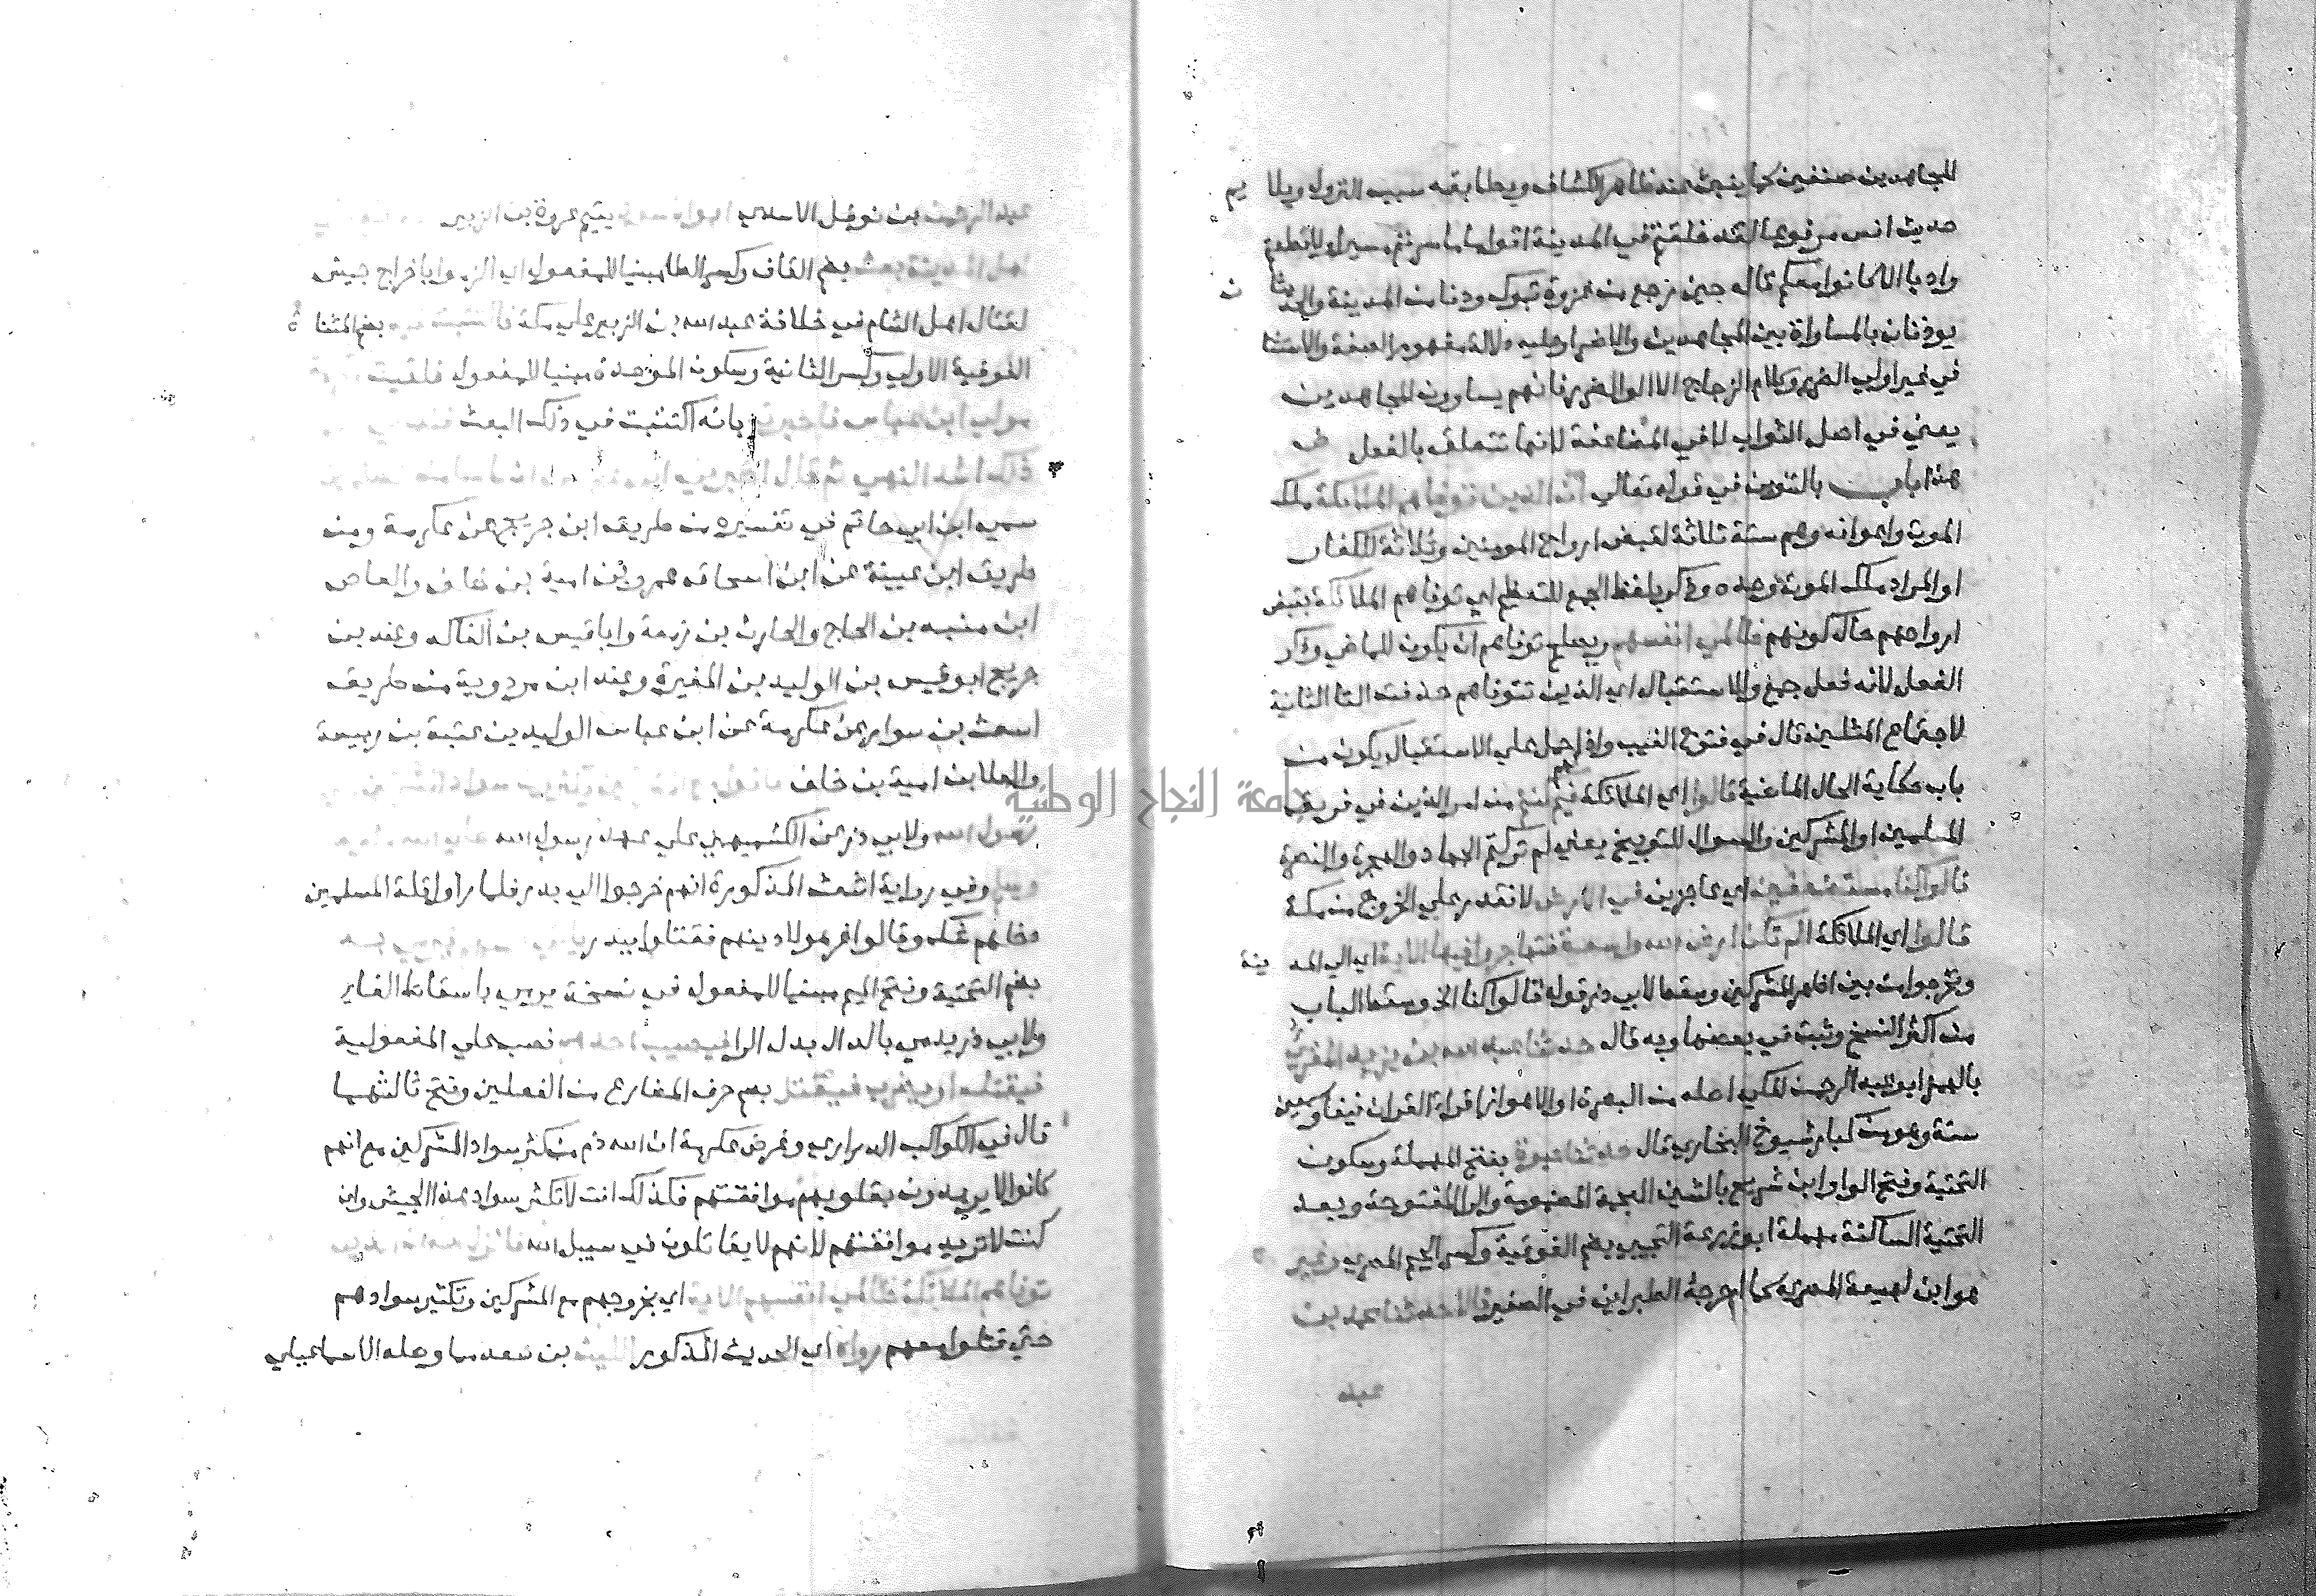 للمجاهدين صنفين كما ينبئ عنه ظاهر الكشاف ويطابقه سبب النزول ويلايم
حديث انس مرفوعا لقد خلفتم في المدينة اقواما ما سرتم مسيرا ولا قطعتم
واديا الا كانوا معكم قاله حين رجع من غزوة تبوك ودنا من المدينة والحديثان
يوذنان بالمساواة بين المجاهدين والاضرا وعليه دلالة مفهوم الصفة والاستثنا
في غير اولي الضرر وكلام الزجاج الا اولوا الضرر فانهم يساوون المجاهدين
يعني في اصل الثواب لا في المضاعفة لانها تتعلق بالفعل
هذا باب بالتنوين في قوله تعالي ان الذين توفاهم الملائكة ملك
الموت واعوانه وهم ستة ثلاثة لقبض ارواح المومنين وثلاثة للكفار
او المراد ملك الموت وحده وذكر بلفظ الجمع للتعظيم اي توفاهم الملائكة بقبض
ارواحهم حال كونهم ظالمي انفسهم ويصلح توفاهم ان يكون للماضي وذكر
الفعل لانه فعل جمع والاستقبال اي الذين تتوفاهم حذفت التا الثانية
لاجتماع المثلين قال في فتوح الغيب واذا حمل علي الاستقبال يكون من
باب حكاية الحال الماضية قالوا اي الملائكة لهم فيم كنتم من امر الدين في فريق
المسلمين او المشركين والسوال للتوبيخ يعني لم تركتم الجهاد والهجرة والنصرة
قالوا كنا مستضعفين اي عاجزين في الارض لا نقدر علي الخروج من مكة
قالوا اي الملائكة الم تكن ارض الله واسعة فتهاجروا فيها الاية اي الي المدينة
وتخرجوا من بين اظهر المشركين وسقط لابي ذر قوله قالوا كنا الخ وسقط الباب
من اكثر النسخ وثبت في بعضها وبه قال حدثنا عبد الله بن يزيد المقرئ
بالهمز ابو عبد الرحمن المكي اصله من البصرة او الاهواز اقرا القران نيفا وسبعين
سنة وهو من كبار شيوخ البخاري قال حدثنا حيوة بفتح المهملة وسكون
التحتية وفتح الواو ابن شريح بالشين المعجمة المضمومة والرا المفتوحة وبعد
التحتية الساكنة مهملة ابو زرعة التجيبي بضم الفوقية وكسر الجيم المصري وغيره
هو ابن لهيعة المصري كما اخرجه الطبراني في الصغير قالا حدثنا محمد بن
عبد
عبد الرحمن بن نوفل الاسدي يتيم عروة بن الزبير
بضم القاف وكسر الطا مبنيا للمفعول اي الزموا باخراج جيش
لقتال اهل الشام في خلافة عبد الله بن الزبير علي مكة بضم المثناة
الفوقية الاولي وكسر الثانية وسكون الموحدة مبنيا للمفعول فلقيت
مولي ابن عباس فاخبرته بانه اكتتبت في ذلك البعث
سمي ابن ابي حاتم في تفسيره من طريق ابن جريج عن عكرمة ومن
طريق ابن عيينة عن ابن اسحاق عمرو بن امية بن خلف والعاص
ابن منبه بن الحاج والحارث بن زمعة وابا قيس بن الفاكه وعند بن
جريج ابو قيس بن الوليد بن المغيرة وعند ابن مردوية من طريق
اسعث بن سوار عن عكرمة عن ابن عباس الوليد بن عتبة بن ربيعة
والعلا بن امية بن خلف
رسول الله ولابي ذر عن الكشميهني علي عهد رسول الله
وفي رواية اشعث المذكورة انهم خرجوا الي بدر فلما راوا قلة المسلمين
دخلهم شك وقالوا غر هولا دينهم فقتلوا ببدر
بضم التحتية وفتح الميم مبنيا للمفعول في نسخة يرمي باسقاط الفا
ولابي ذر يدمي بالدال بدل الرا فيصيب احدهم نصب علي المفعولية
فيقتله او يضرب فيقتل بضم حرف المضارع من الفعلين وفتح ثالثهما
قال في الكواكب الدراري وغرض عكرمة ان الله ذم من كثر سواد المشركين مع انهم
كانوا لا يريدون بقلوبهم موافقتهم فكذلك انت لا تكثر سواد هذا الجيش وان
كنت لا تريد موافقتهم لانهم لا يقاتلون في سبيل الله
توفاهم الملائكة ظالمي انفسهم الاية اي بخروجهم مع المشركين وتكثير سوادهم
حتي قتلوا معهم رواه اي الحديث المذكور الليث بن سعد مما وصله الاسماعيلي
جامعة النجاح الوطنية